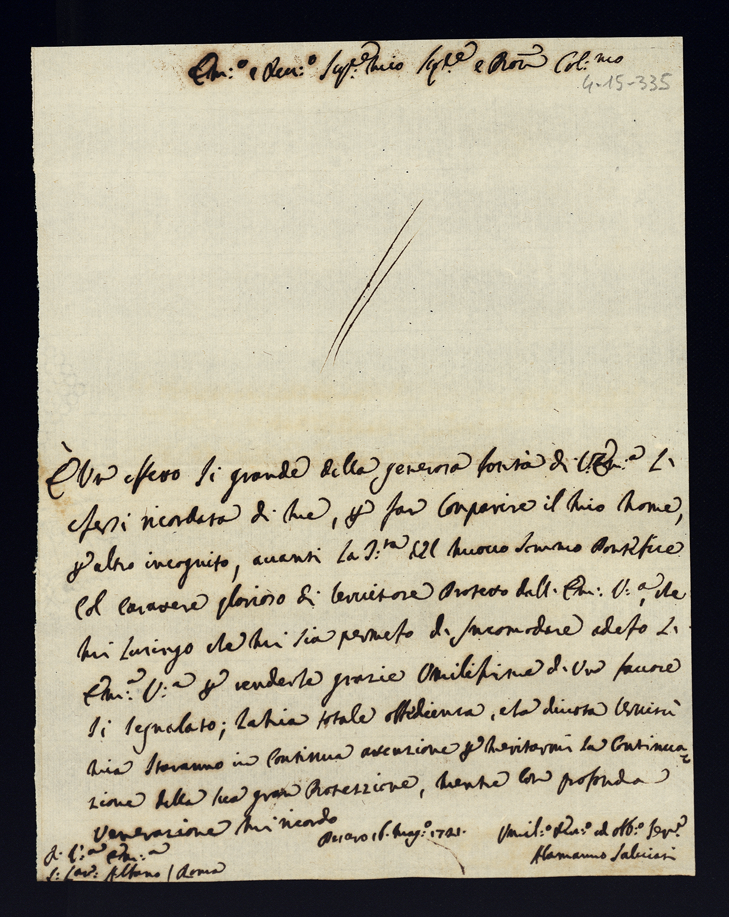 Em:º e Rev:º Sigr.e mio Sigr.e e Pron Col:mo
4-15-335
È Un effetto sì grande della generosa bontà di V: Em:a L'
essersi ricordata di me, p far comparire il mio nome,
p altro incognito, avanti La S:tà del nuovo Sommo Pontefice
Col Carattere glorioso di Servitore Protetto dall' Em: V:a, che
mi Lusingo che mi sia permesso d'Incomodare adesso L'
Em:a V:a p renderle grazie Umilissime d'Un favore
sì segnalato; La mia totale obbedienza, e la divota Servitù
mia Staranno in Continua attenzione p meritarmi La Continua
zione della sua gran Protezzione, mentre Con profonda
Venerazione mi ricordo
Pesaro 16. Mag:º 1721.
Umil:º Dev:º ed obb:º Serv:e
Alamanno Salviati
di V:a Em:a
S: Car: Albano / Roma